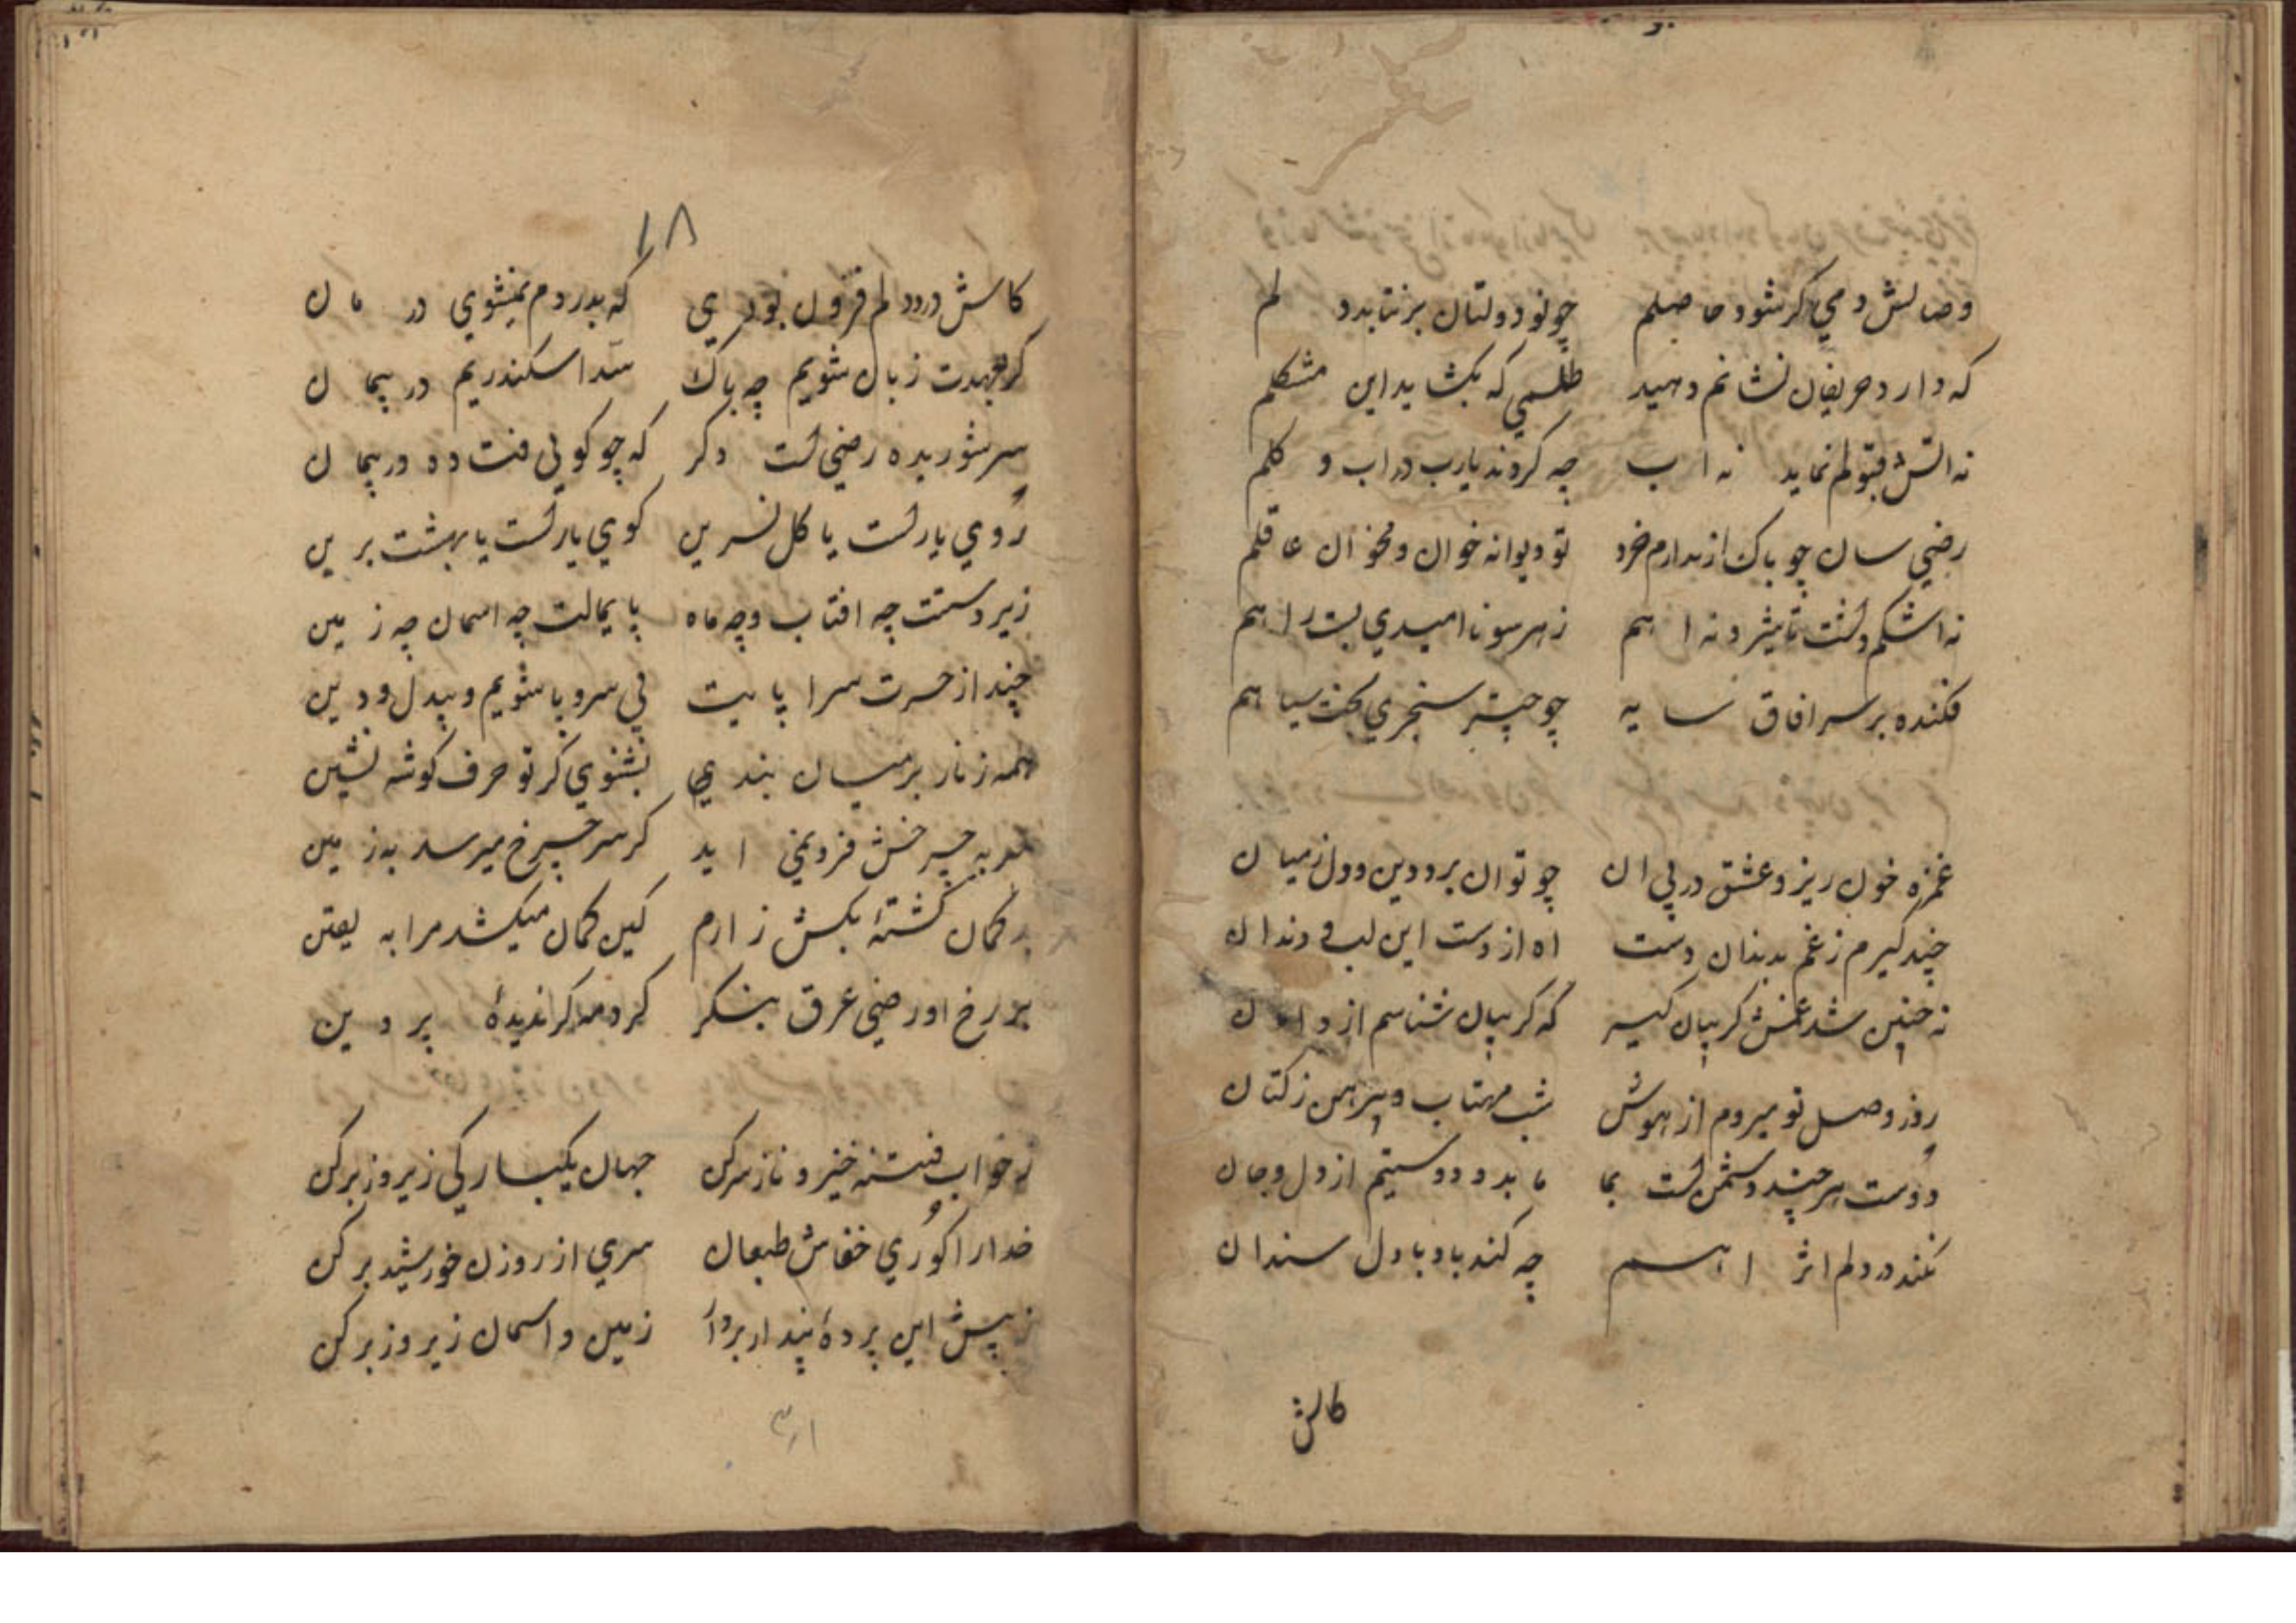 وصالش دمي كر شود حاصلم چو نو دولتان بر نتابد دلم
كه دارد حريفان نشانم دهيد طلسمي كه بكشايد اين مشكلم
نه اتش قبولم نمايد نه اب چه كردند يارب در اب و كلم
رضي سان چو باك از ندارم خرد تو ديوانه خوان و مخوان عاقلم
نه اشكم داشت تاثير و نه اهم ز هر سو نااميدي بست راهم
فكنده بر سر افاق سايه چو چتر سنجري بخت سياهم
غمزه خون ريز و عشق در پي ان چو توان برد دين و دل ز ميان
چند كيرم ز غم بدندان دست اه از دست اين لب و دندان
نه چنين شد غمش كريبان كير كه كريبان شناسم از دامان
روز وصل تو ميروم از هوش شب مهتاب و پيرهن ز كتان
دوست هر چند دشمن است بما ما بدو دوستيم از دل و جان
نكند در دلم اثر اهم چه كند باد با دل سندان
كاش
۱۸
كاش درد دلم فزون بودي كه بدردم نميشوي درمان
كر بعهدت زبان شويم چه باك سد اسكندريم در پيمان
سر شوريده رضي است دكر كه چو كوئي فتاده در پيمان
روي يار است يا كل نسرين كوي يار است يا بهشت برين
زير دستت چه افتاب و چه ماه پايمالت چه اسمان چه زمين
چند از حسرت سراپايت بي سر و پا شويم و بيدل و دين
همه زنار بر ميان بندي بشنوي كر تو حرف كوشه نشين
سر به چرخش فرو نمي ايد كر سر چرخ ميرسد به زمين
بد كمان كشتهٔ بكش زارم كين كمان ميكشد مرا به يقين
بر رخ او رضي عرق بنكر كرد مه كر نديدهٔ پروين
ز خواب فتنه خيز و ناز سر كن جهان يكباركي زير و زبر كن
خدا را كوري خفاش طبعان سري از روزن خورشيد بر كن
ز پيش اين پردهٔ پندار بردار زمين و اسمان زير و زبر كن